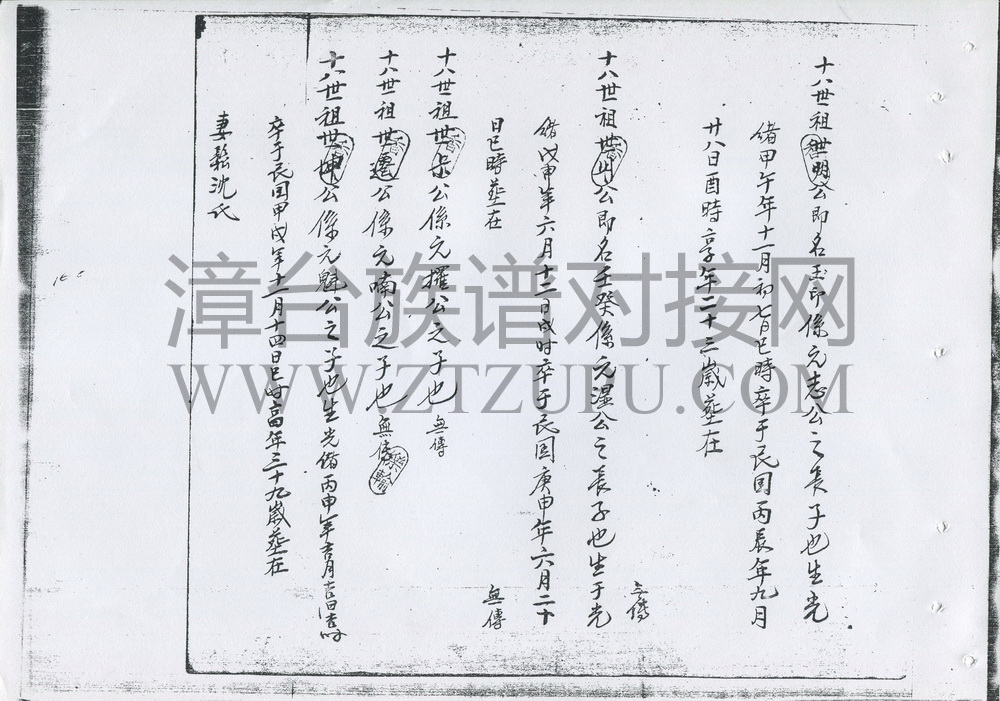 十八世祖世明公即名玉印係元志公之長子也生光
緒甲午年十一月初七日巳時卒于民国丙辰年九月
廿八日酉時享年二十三歲葬在
無傳
十八世祖世公即名壬癸係元湿公之長子也生于光
緒戊申年六月十二日戌时卒于民国庚申年六月二十
日巳時葬在
無傳
十八世祖世公係元擢公之子也 無傳
十八世祖世遷公係元喃公之子也 無傳
十八世祖世坤公係元魁公之子也生光緒丙申年
卒于民国甲戌年十一月十四日巳时高年三十九歲葬在
妻鬆沈氏
漳台族谱对接网
WWW.ZTZUPU.COM